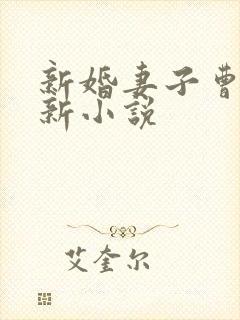 新婚妻子曹
新小说
艾奎尔